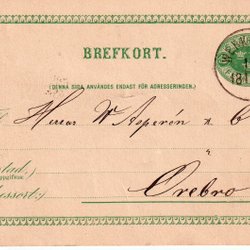 BREFKORT.
(DENNA SIDA ANVÄNDES ENDAST FÖR ADRESSERINGEN.)
Herrar W. Asperén & C
å
Örebro